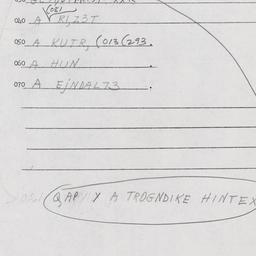 (051
040 A RI,Z3T
050 A KUTR, (013(293.
060 A HUN .
070 A EJNDAL73 .
Q,AP Y A TROGNDIKE HINTEX